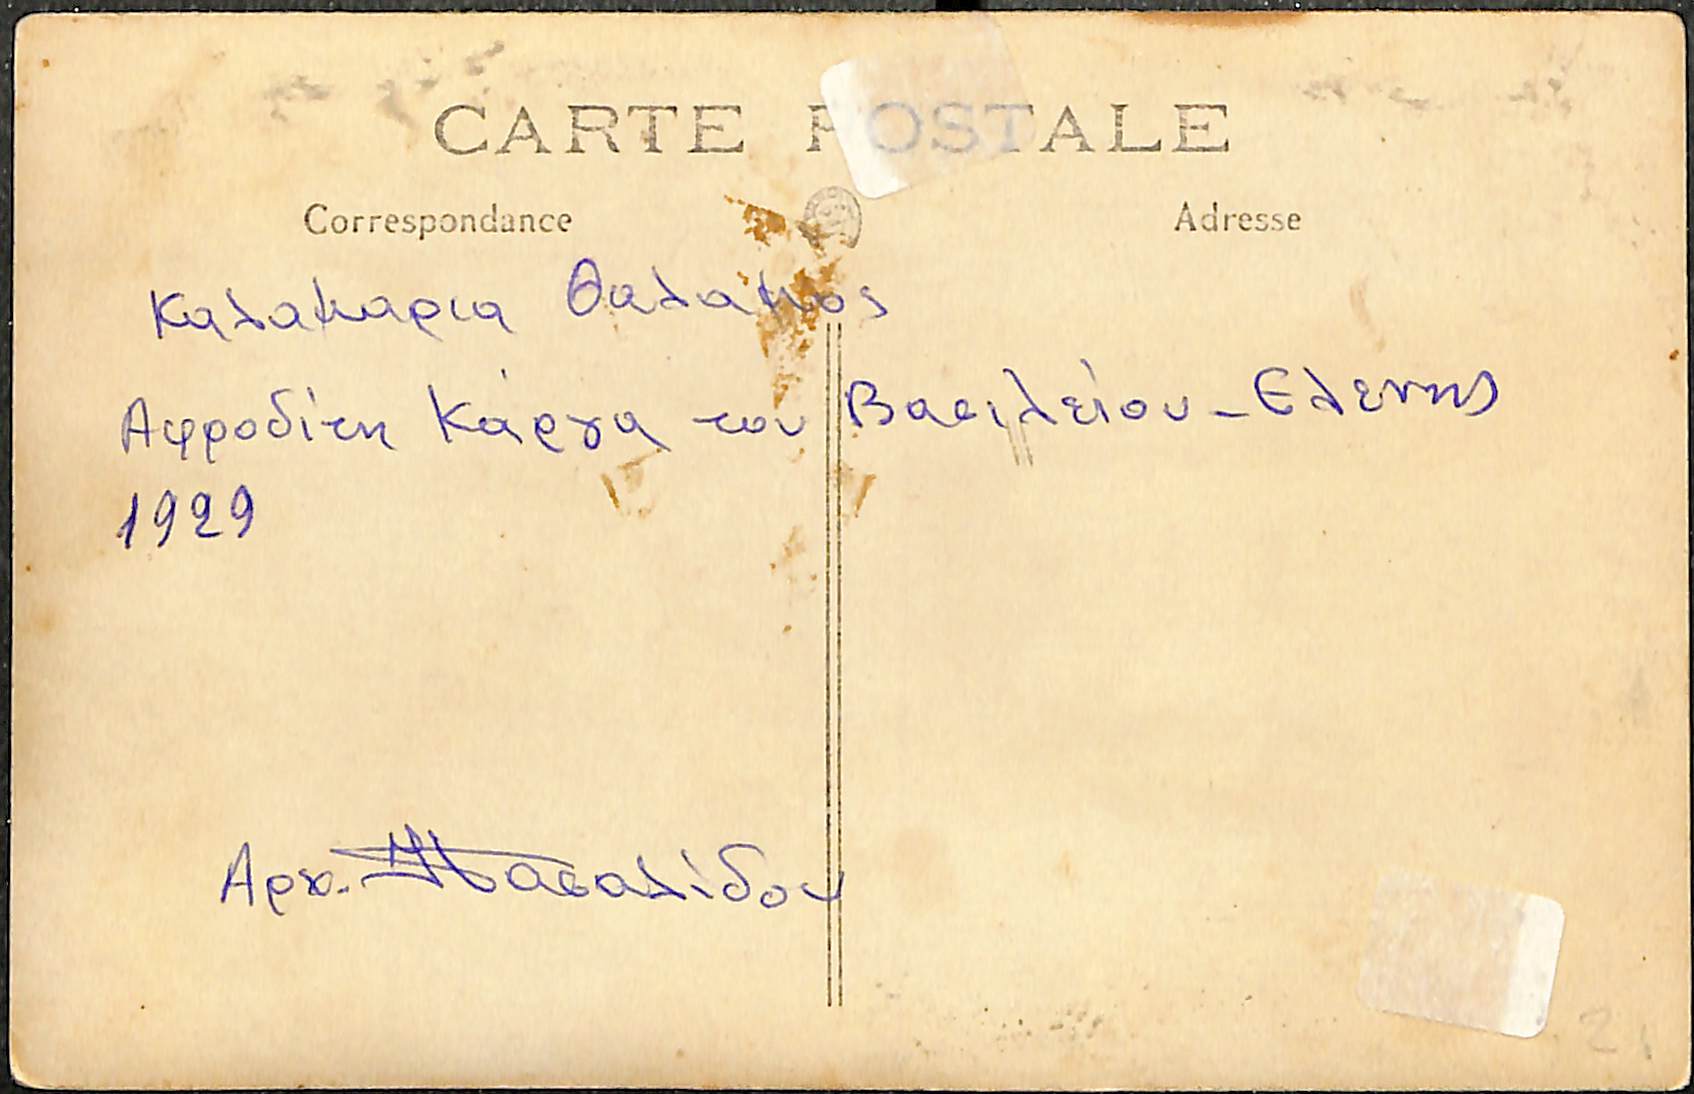 CARTE POSTALE
Correspondance
Adresse
Καλαμαρια Θαλαμος
Αφροδίτη Κάργα του Βασιλείου - Ελενης
1929
Αρχ. Πασαλίδου
21